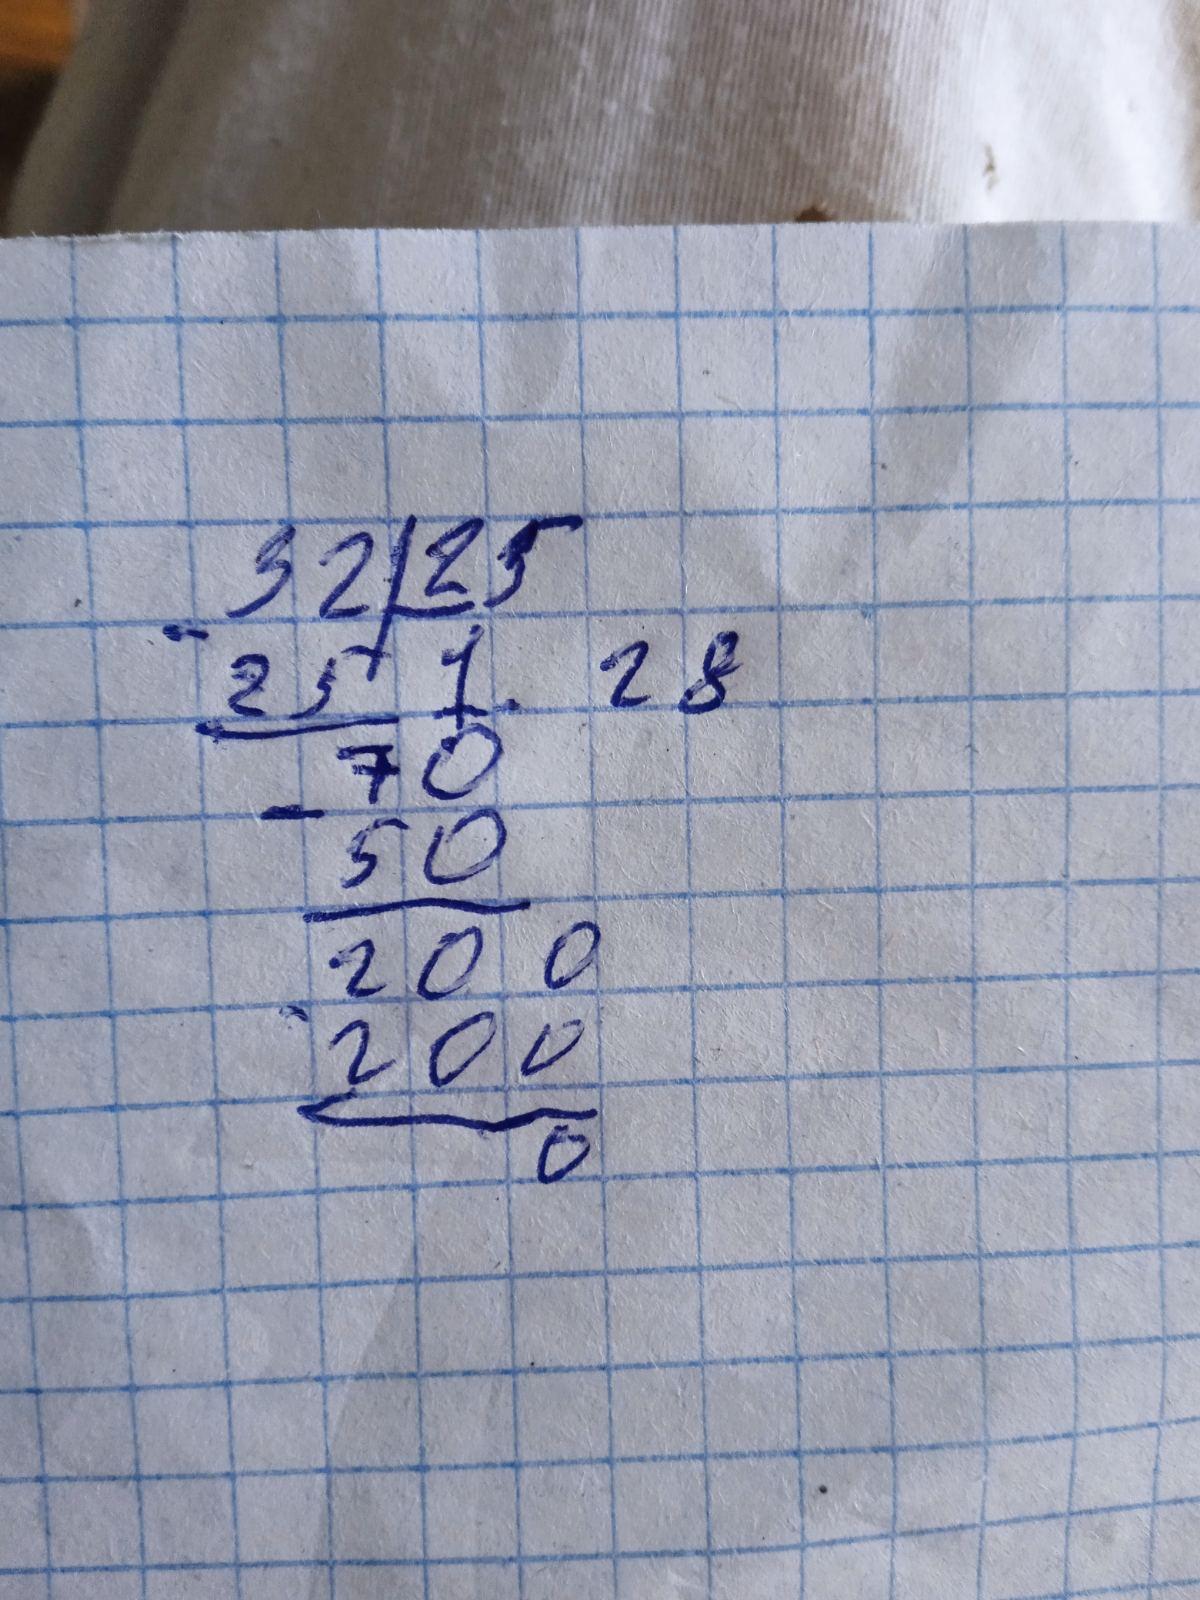 32 25
- 25 1. 28
70
- 50
200
- 200
0